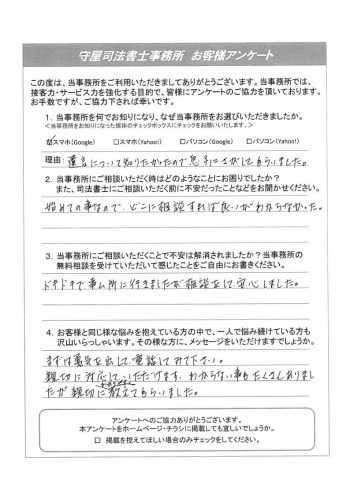 守屋司法書士事務所 お客様アンケート
この度は、当事務所をご利用いただきましてありがとうございます。当事務所では、
接客力・サービス力を強化する目的で、皆様にアンケートのご協力を頂いております。
お手数ですが、ご協力下されば幸いです。
1. 当事務所を何でお知りになり、なぜ当事務所をお選びいただきましたか。
<当事務所をお知りになった媒体のチェックボックスにチェックをお願いいたします。>
☑スマホ(Google) □スマホ(Yahoo!) □パソコン(Google) □パソコン(Yahoo!)
理由: 遺言について知りたかったので息子にさがしてもらいました。
2. 当事務所にご相談いただく時はどのようなことにお困りでしたか?
また、司法書士にご相談いただく前に不安だったことなどをお聞かせください。
始めての事なので、どこに相談すれば良いかわからなかった。
3. 当事務所にご相談いただくことで不安は解消されましたか?当事務所の
無料相談を受けていただいて感じたことをご自由にお書きください。
ドキドキで事ム所に行きましたが相談をして安心しました。
4. お客様と同じ様な悩みを抱えている方の中で、一人で悩み続けている方も
沢山いらっしゃいます。その様な方に、メッセージをいただけますでしょうか。
まずは勇気を出して電話してみて下さい。
親切に対応していただけます。わからない事もたくさんありまし
たが親切に教えてもらいました。
アンケートへのご協力ありがとうございます。
本アンケートをホームページ・チラシに掲載しても宜しいでしょうか。
□ 掲載を控えてほしい場合のみチェックをしてください。